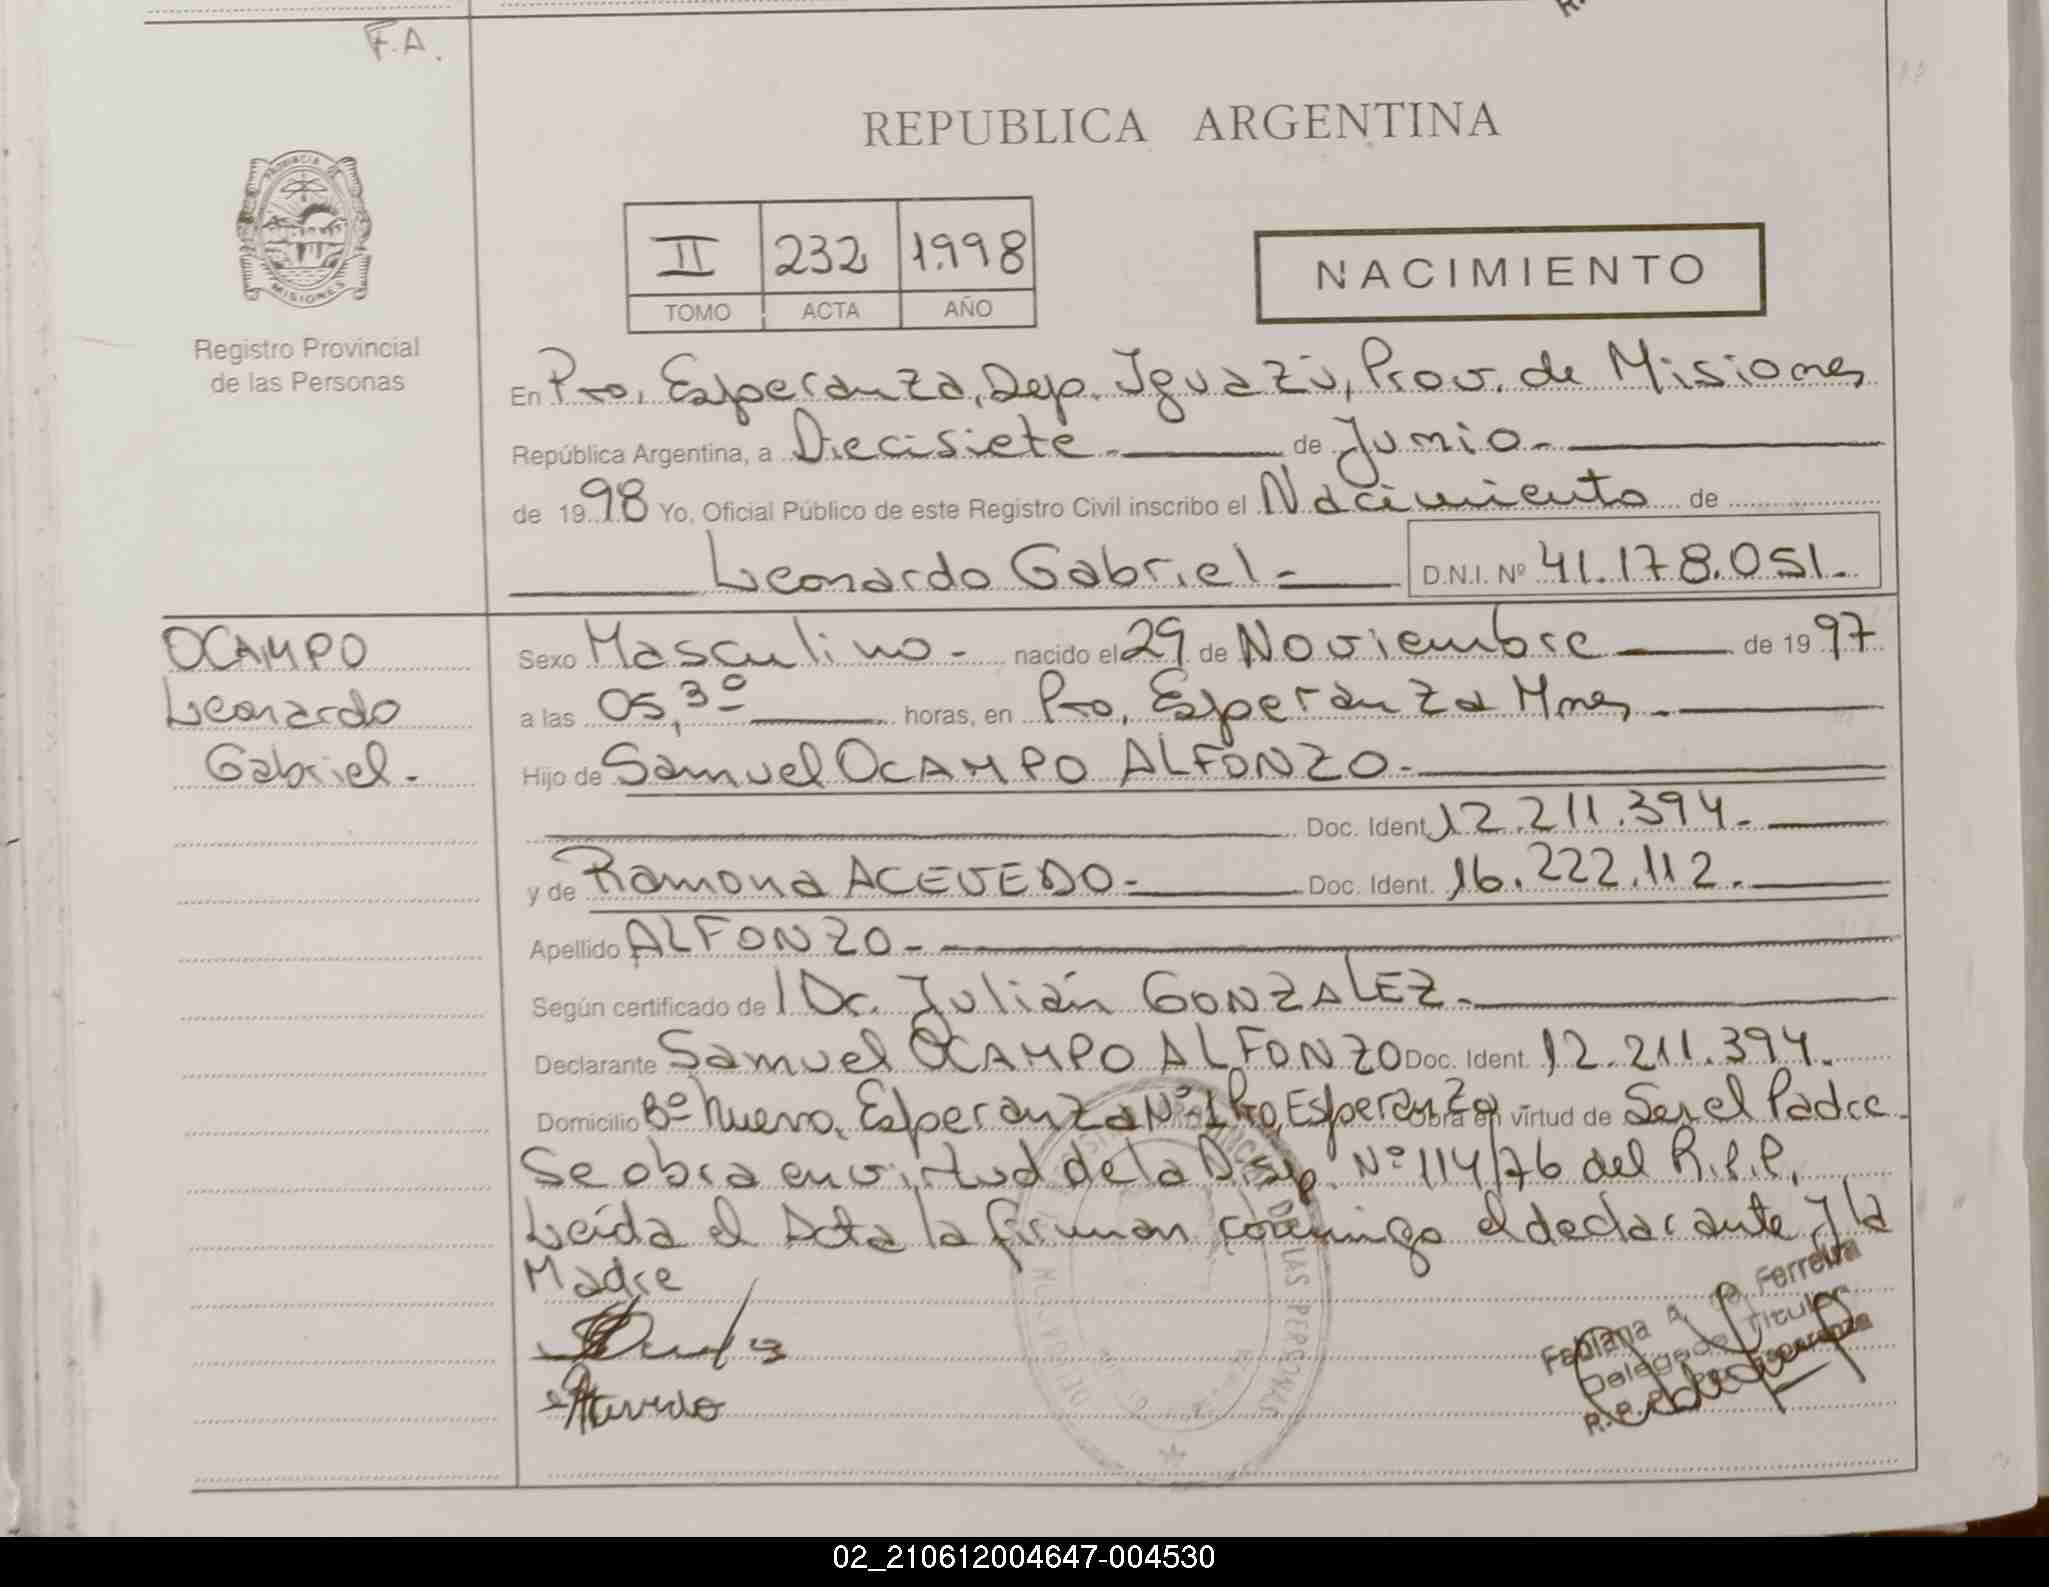 F.A.
REPUBLICA ARGENTINA
PROVINCIA DE
MISIONES
Registro Provincial
de las Personas
II 232 1.998
TOMO ACTA AÑO
NACIMIENTO
En Pto, Esperanza, Dep. Iguazú, Prov. de Misiones
República Argentina, a Diecisiete.- de Junio.-
de 1998 Yo, Oficial Público de este Registro Civil inscribo el Nacimiento de
Leonardo Gabriel.- D.N.I. Nº 41.178.051.-
OCAMPO
Leonardo
Gabriel.-
Sexo Masculino.- nacido el 29 de Noviembre de 1997
a las 05,30 horas, en Pto, Esperanza Mnes.-
Hijo de Samuel OCAMPO ALFONZO.-
Doc. Ident 12.211.394.-
y de Ramona ACEVEDO.- Doc. Ident. 16.222.112.-
Apellido ALFONZO.-
Según certificado de / Dr. Julián GONZALEZ.-
Declarante Samuel OCAMPO ALFONZO Doc. Ident. 12.211.394.
Domicilio Bº Nueva, Esperanza Nº 1 Pto, Esperanza Obra en virtud de Ser el Padre.
Se obra en virtud de la Disp. Nº 114/76 del R.P.P.
Leída el Acta la firman conmigo el declarante y la
Madre
Acevedo
DE LAS PERSONAS
Fabiana A. Ferreira
Delegada Titular
R.P.P. Pto. Esperanza
02_210612004647-004530